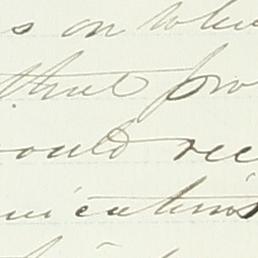 s on whe
that pro
ould rec
nications